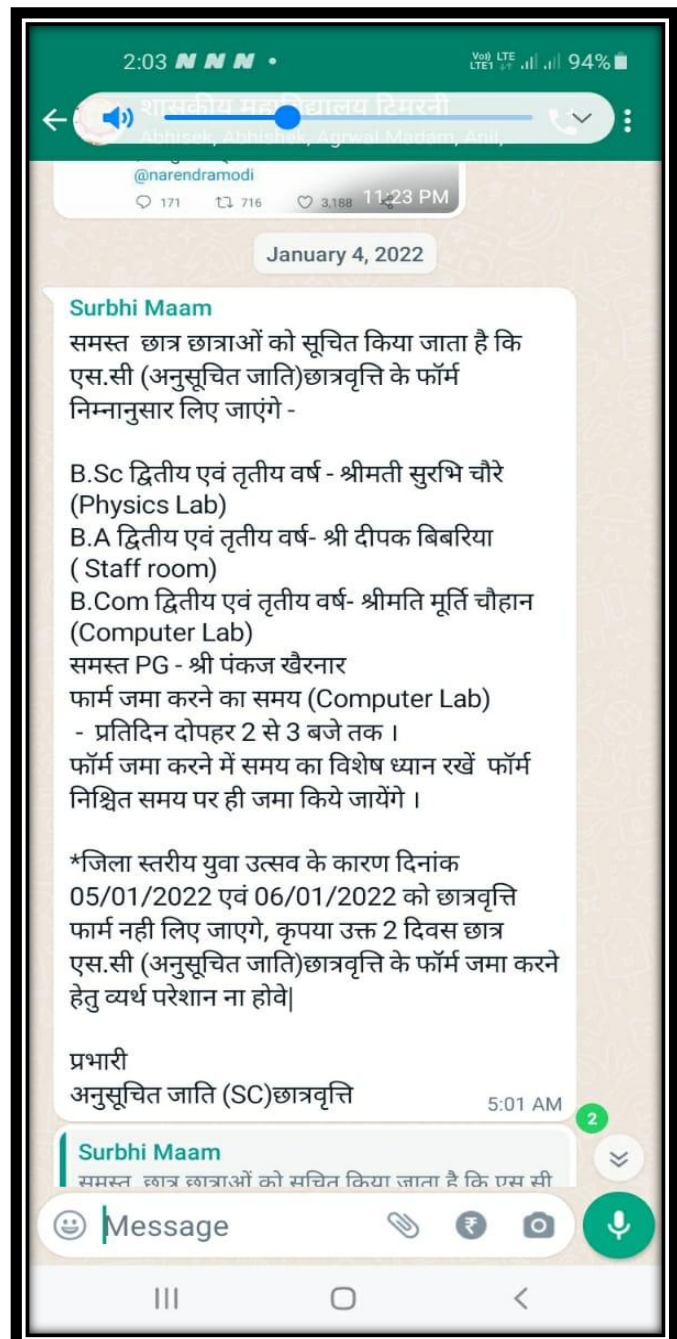 2:03 N N N •
Vo)) LTE LTE1 94%
शासकीय महाविद्यालय टिमरनी
Abhisek, Abhishek, Agrwal Madam, Anil,
@narendramodi
171 716 3,188 11:23 PM
January 4, 2022
Surbhi Maam
समस्त छात्र छात्राओं को सूचित किया जाता है कि
एस.सी (अनुसूचित जाति)छात्रवृत्ति के फॉर्म
निम्नानुसार लिए जाएंगे -
B.Sc द्वितीय एवं तृतीय वर्ष - श्रीमती सुरभि चौरे
(Physics Lab)
B.A द्वितीय एवं तृतीय वर्ष- श्री दीपक बिबरिया
( Staff room)
B.Com द्वितीय एवं तृतीय वर्ष- श्रीमति मूर्ति चौहान
(Computer Lab)
समस्त PG - श्री पंकज खैरनार
फार्म जमा करने का समय (Computer Lab)
- प्रतिदिन दोपहर 2 से 3 बजे तक ।
फॉर्म जमा करने में समय का विशेष ध्यान रखें फॉर्म
निश्चित समय पर ही जमा किये जायेंगे ।
*जिला स्तरीय युवा उत्सव के कारण दिनांक
05/01/2022 एवं 06/01/2022 को छात्रवृत्ति
फार्म नही लिए जाएगे, कृपया उक्त 2 दिवस छात्र
एस.सी (अनुसूचित जाति)छात्रवृत्ति के फॉर्म जमा करने
हेतु व्यर्थ परेशान ना होवे|
प्रभारी
अनुसूचित जाति (SC)छात्रवृत्ति
5:01 AM
2
Surbhi Maam
समस्त छात्र छात्राओं को सूचित किया जाता है कि एस सी
Message